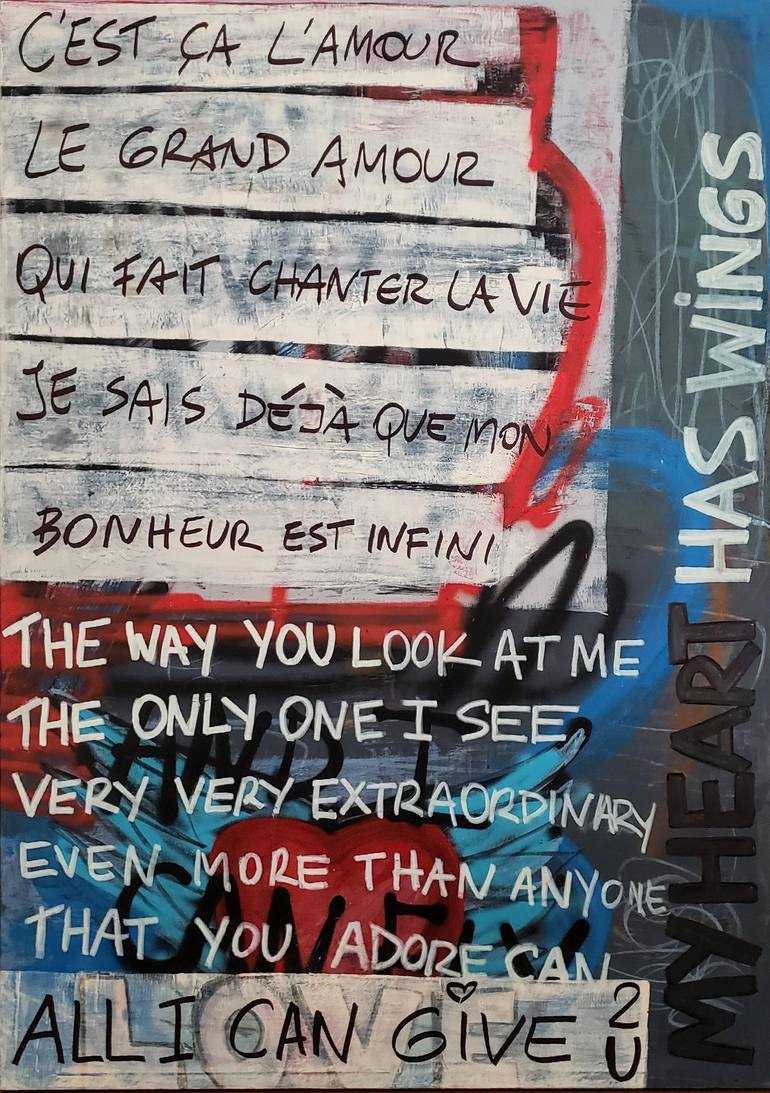 C'EST ÇA L'AMOUR
LE GRAND AMOUR
QUI FAIT CHANTER LA VIE
JE SAIS DÉJÀ QUE MON
BONHEUR EST INFINI
THE WAY YOU LOOK AT ME
THE ONLY ONE I SEE
VERY VERY EXTRAORDINARY
EVEN MORE THAN ANYONE
THAT YOU ADORE CAN
LOVE
ALL I CAN GIVE 2 U
MY HEART HAS WINGS
AND I
CAN FLY